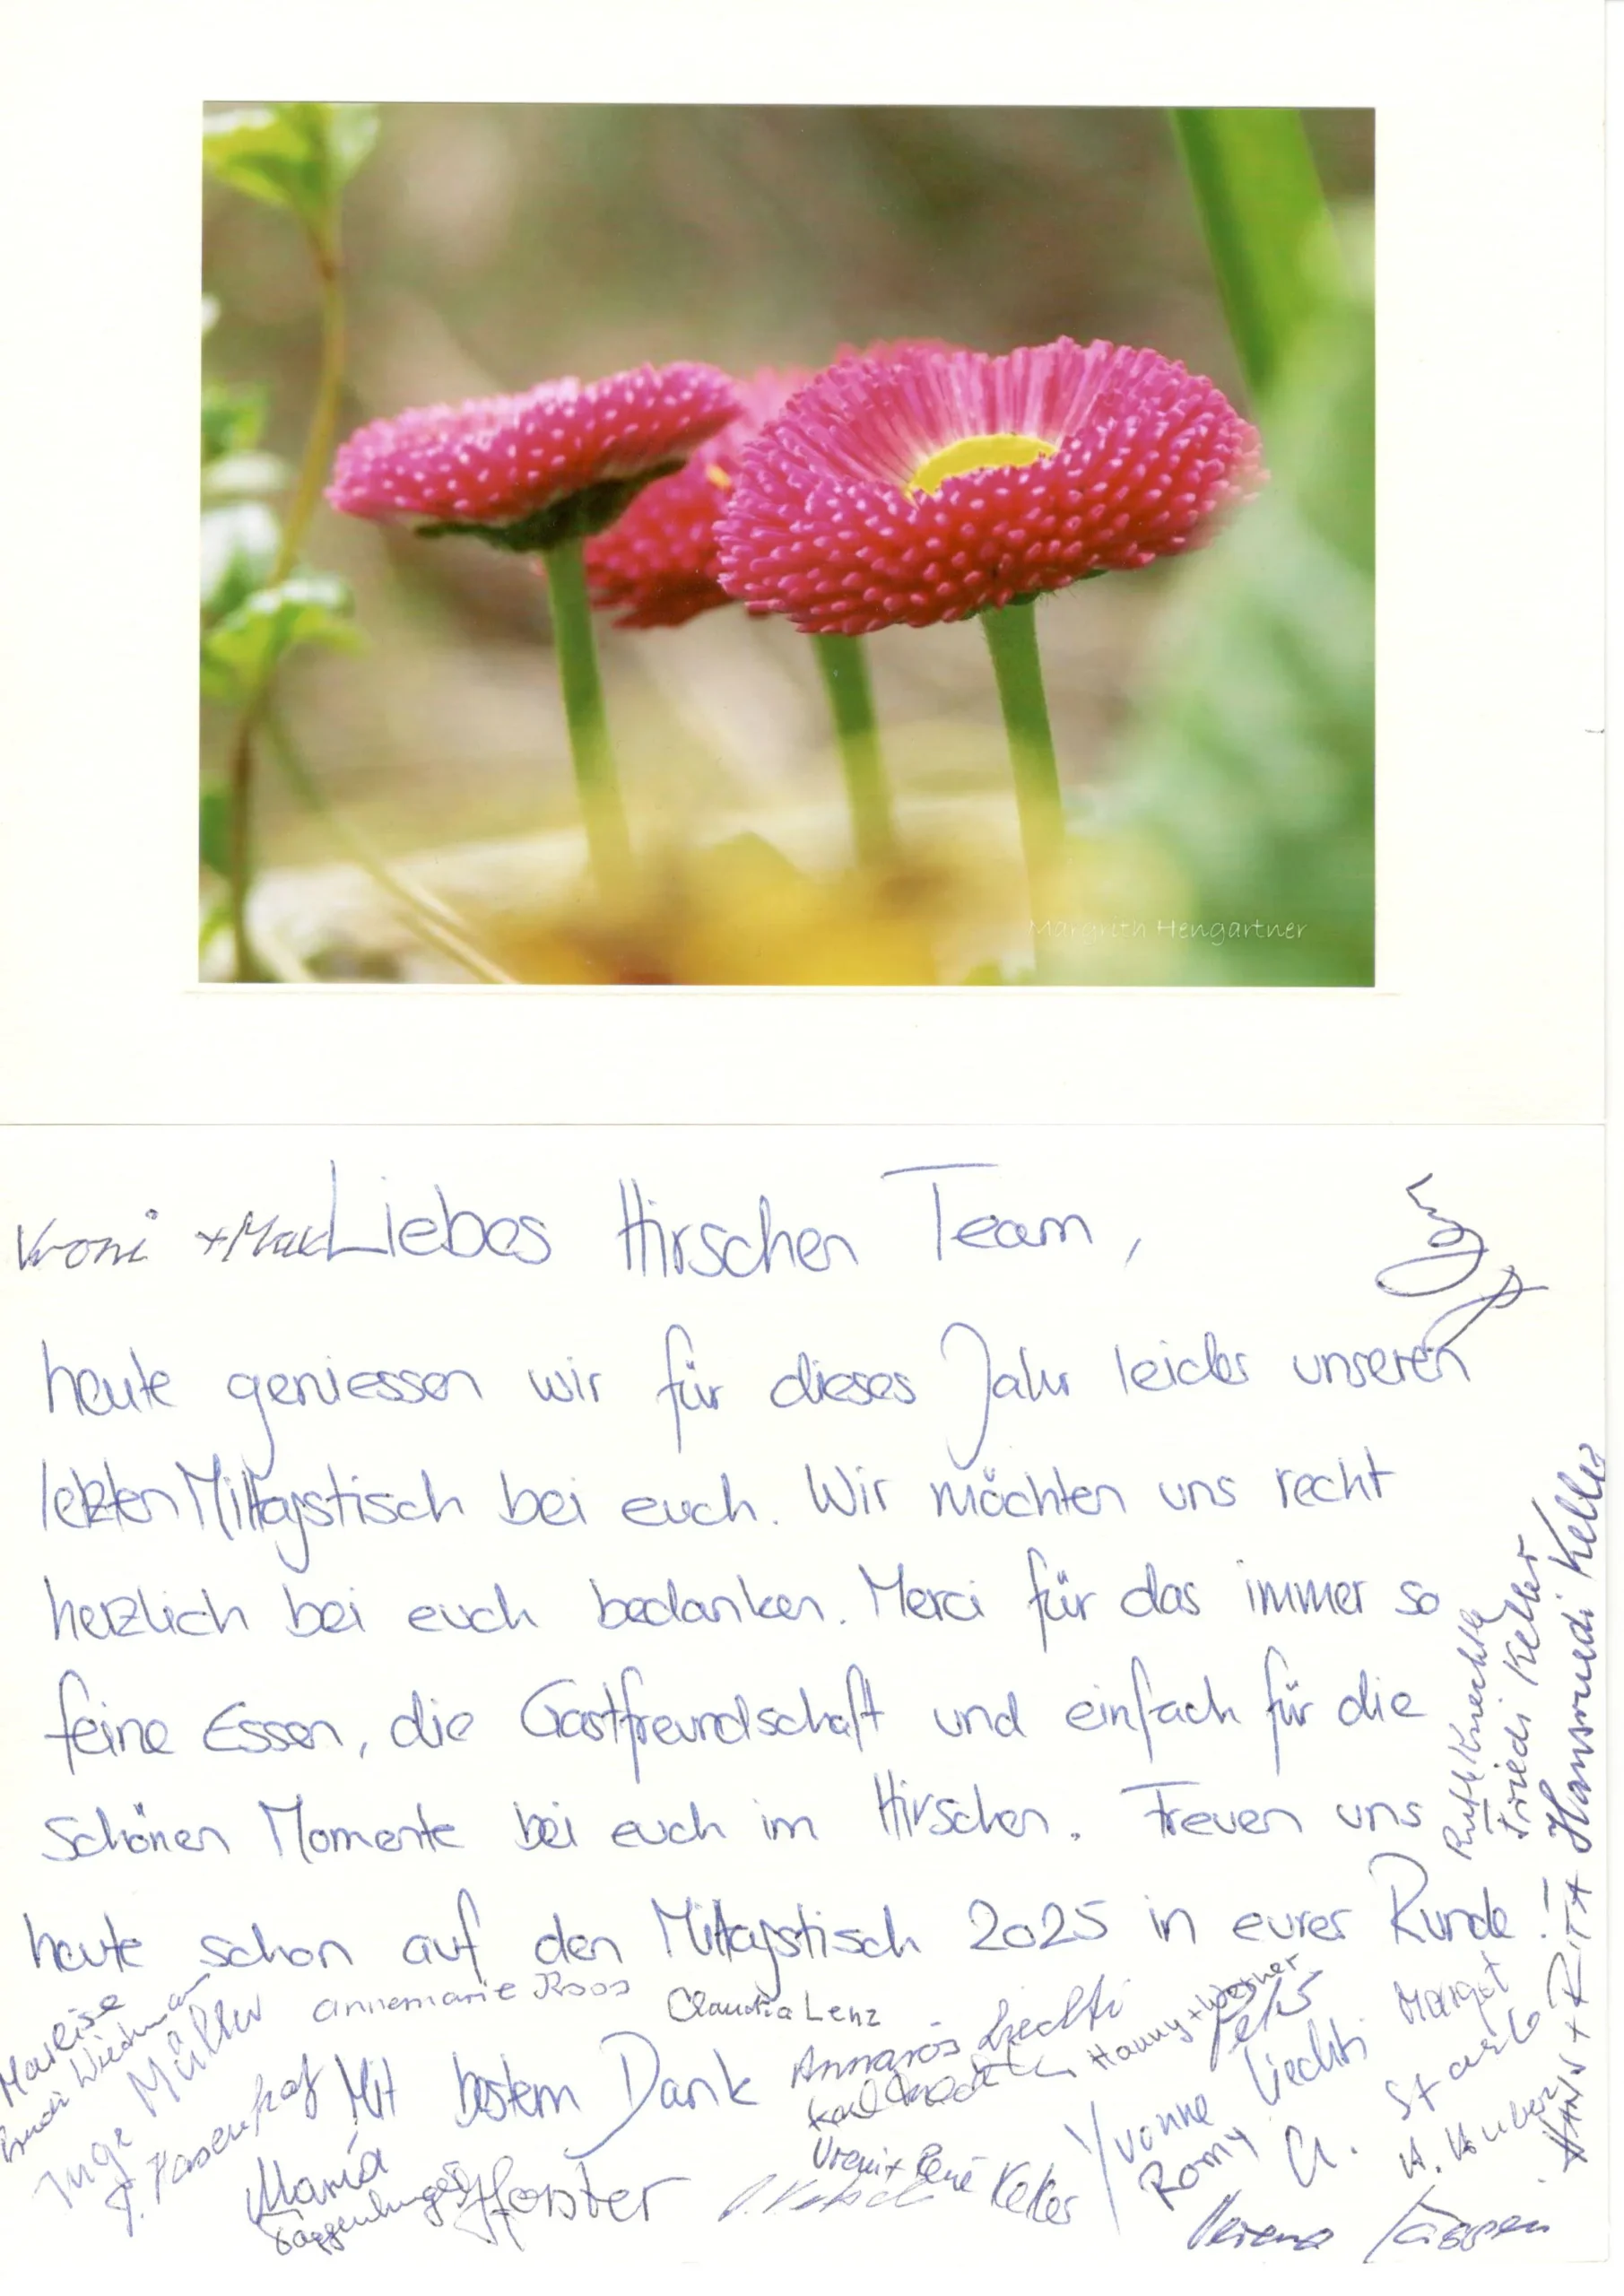 Margrith Hengartner
Vroni + Max
Liebes Hirschen Team,
heute geniessen wir für dieses Jahr leider unseren
letzten Mittagstisch bei euch. Wir möchten uns recht
herzlich bei euch bedanken. Merci für das immer so
feine Essen, die Gastfreundschaft und einfach für die
schönen Momente bei euch im Hirschen. Freuen uns
heute schon auf den Mittagstisch 2025 in eurer Runde!
Mit bestem Dank
Marlise
Inge Müller
Annemarie Roos
Claudia Lenz
Annarös Liechti
Hanny + Werner
Maria
Forster
Vreni + René Keller
Yvonne Liechti
Romy
Margot
H. Huber
Verena
Ruth
Friedi Keller
Hansruedi Keller
Hans + Rita